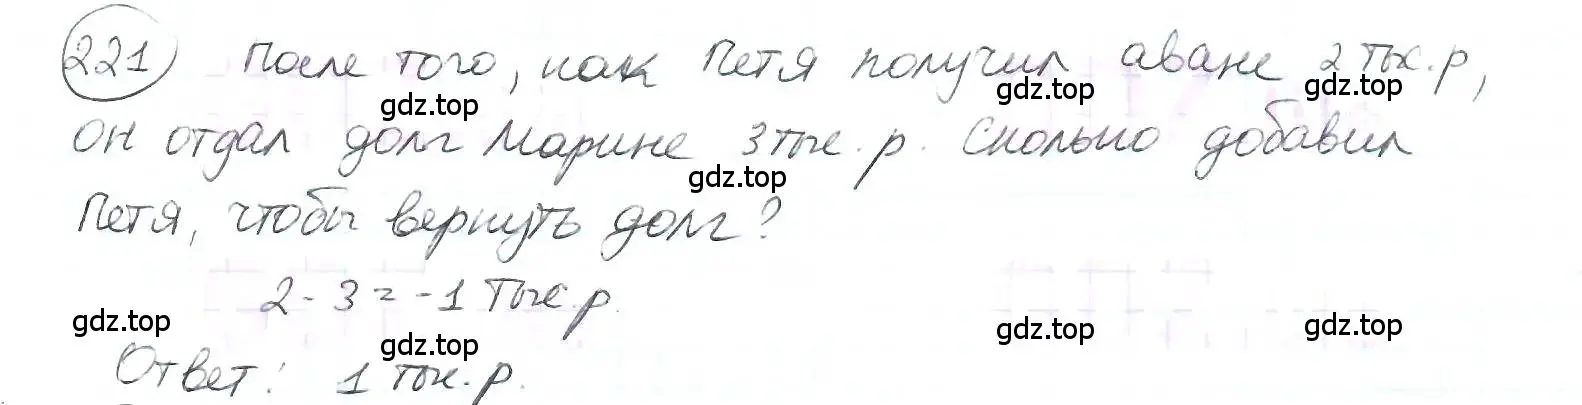 221 После того, как Петя получил аванс 2 тыс. р,
gdz.top gdz.top gdz.top
он отдал долг Марине 3 тыс. р. Сколько добавил
gdz.top
Петя, чтобы вернуть долг?
2 - 3 = -1 тыс. р.
gdz.top gdz.top gdz.top
Ответ: 1 тыс. р.
gdz.top